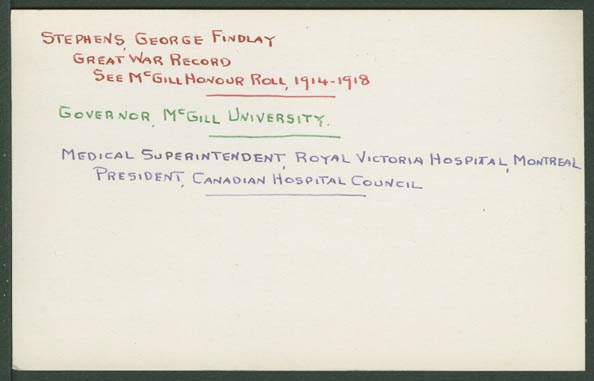 STEPHENS, GEORGE FINDLAY
GREAT WAR RECORD
SEE MCGILL HONOUR ROLL, 1914-1918
GOVERNOR, MCGILL UNIVERSITY.
MEDICAL SUPERINTENDENT, ROYAL VICTORIA HOSPITAL, MONTREAL
PRESIDENT, CANADIAN HOSPITAL COUNCIL